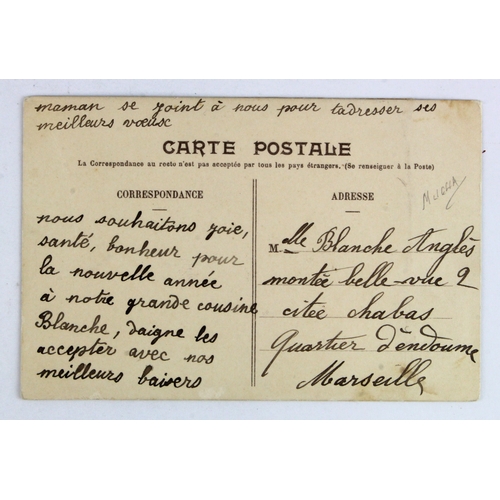 maman se joint à nous pour t'adresser ses
meilleurs vœusc
CARTE POSTALE
La Correspondance au recto n'est pas acceptée par tous les pays étrangers. (Se renseigner à la Poste)
CORRESPONDANCE
nous souhaitons joie,
santé, bonheur pour
la nouvelle année
à notre grande cousine
Blanche, daigne les
accepter avec nos
meilleurs baisers
ADRESSE
MUCHA
Mlle Blanche Anglès
montée belle-vue 2
citée chabas
Quartier d'endoume
Marseille